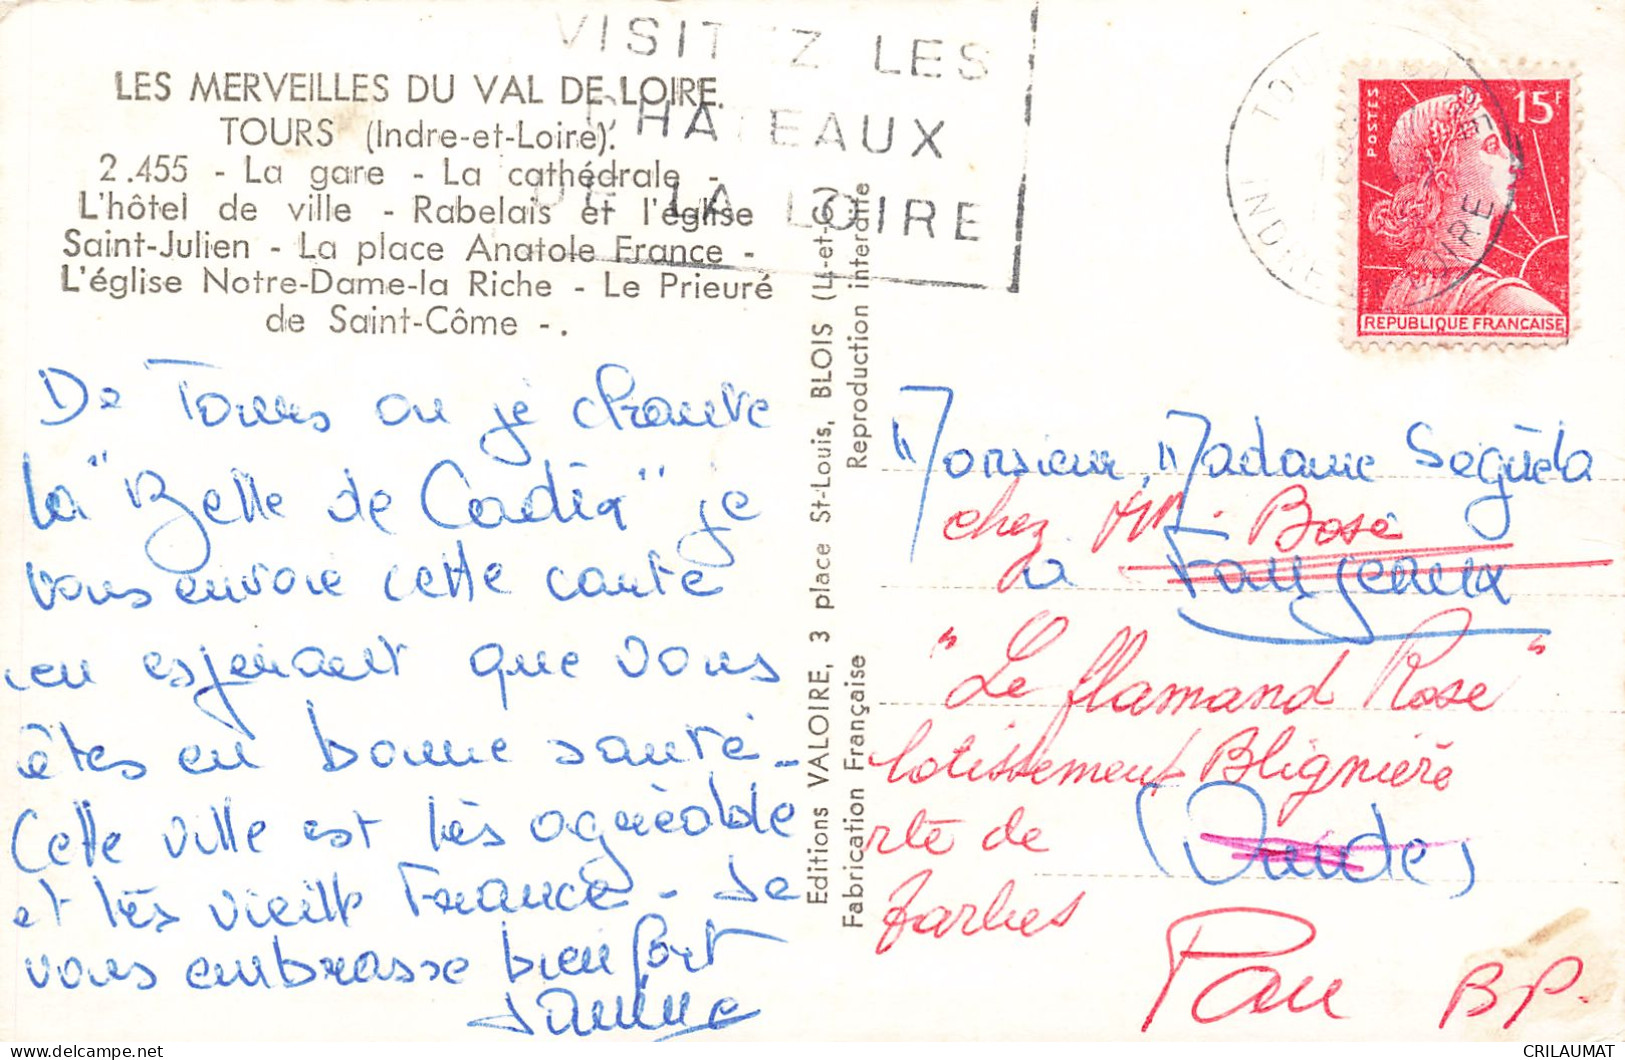 VISITEZ LES
CHATEAUX
DE LA LOIRE
LES MERVEILLES DU VAL DE LOIRE.
TOURS (Indre-et-Loire).
2.455 - La gare - La cathédrale -
L'hôtel de ville - Rabelais et l'église
Saint-Julien - La place Anatole France -
L'église Notre-Dame-la Riche - Le Prieuré
de Saint-Côme -.
De Tours ou je chante
la "Belle de Cadix" je
vous envoie cette carte
en espérant que vous
êtes en bonne santé -
Cette ville est très agréable
et très vieille France - Je
vous embrasse bien fort
Janine
Editions VALOIRE, 3 place St-Louis, BLOIS (L-et-C)
Fabrication Française
Reproduction interdite
POSTES
15F
REPUBLIQUE FRANCAISE
INDRE
LOIRE
Monsieur, Madame Seguela
chez Mr. Bosc
à Fanjeaux
"Le flamand Rose"
lotissement Blignière
rte de
(Aude)
Tarbes
Pau
BP.
CRILAUMAT